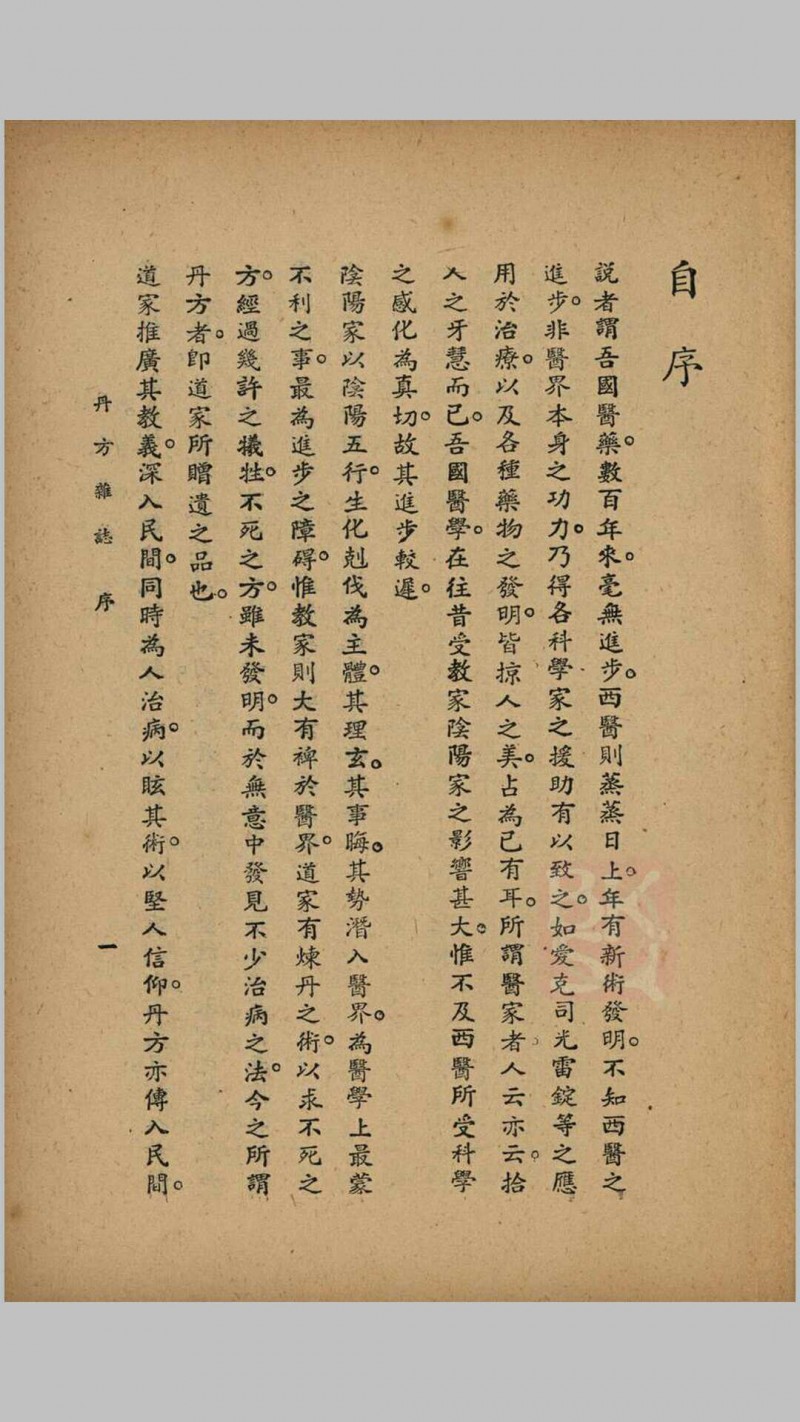 自序
説者謂吾國醫藥。數百年來。毫無進步。西醫則蒸蒸日上。年有新術發明。不知西醫之
進步。非醫界本身之功力。乃得各科學家之援助有以致之。如愛克司光雷錠等之應
用於治療。以及各種藥物之發明。皆掠人之美。占為己有耳。所謂醫家者人云亦云。拾
人之牙慧而已。吾國醫學。在往昔受教家陰陽家之影響甚大。惟不及西醫所受科學
之感化為真切。故其進步較遲。
陰陽家以陰陽五行。生化剋伐為主體。其理玄。其事晦。其勢潛入醫界。為醫學上最蒙
不利之事。最為進步之障碍。惟教家則大有裨於醫界。道家有煉丹之術。以求不死之
方。經過幾許之犠牲。不死之方。雖未發明。而於無意中發見不少治病之法。今之所謂
丹方者。即道家所贈遺之品也。
道家推廣其教義。深入民間。同時為人治病。以眩其術。以堅人信仰。丹方亦傳入民間。
丹方雜誌 序 一